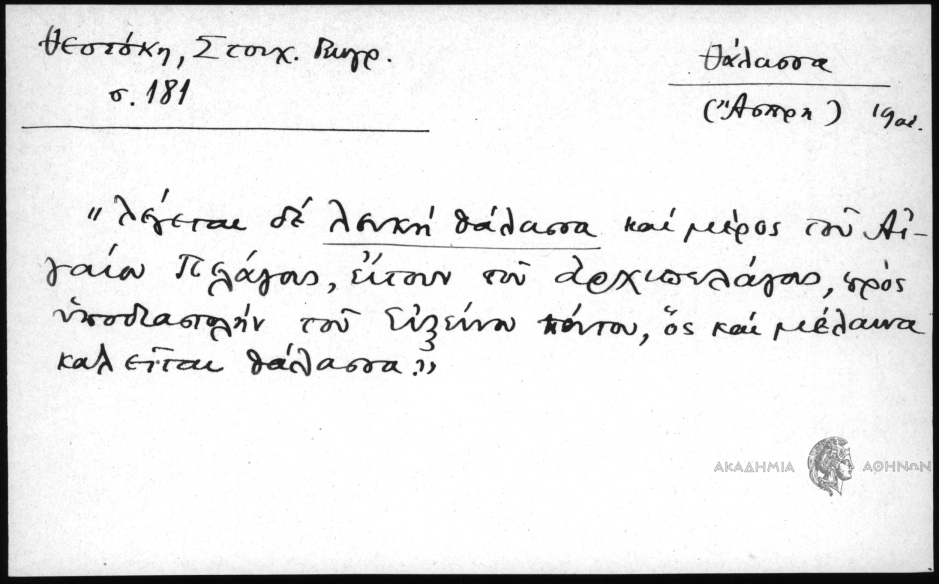 Θεοτόκη, Στοιχ. Γεωγρ.
σ. 181
θάλασσα
(Ἄσπρη)
"λέγεται δέ λευκή θάλασσα καί μέρος τοῦ Αἰ-
γαίου Πελάγους, εἴτουν τοῦ ἀρχιπελάγους, πρός
ὑποδιαστολήν τοῦ Εὐξείνου πόντου, ὅς καί μέλαινα
καλεῖται θάλασσα."
ΑΚΑΔΗΜΙΑ ΑΘΗΝΩΝ